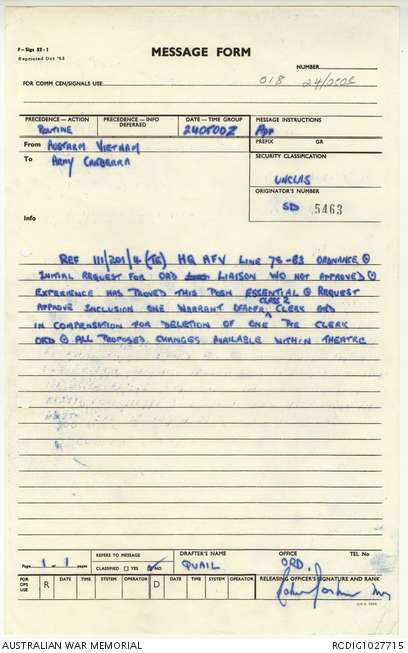 F-Sigs 52-1
Reprinted Oct '65
MESSAGE FORM
NUMBER
FOR COMM CEN/SIGNALS USE
018 24/0808
PRECEDENCE—ACTION
ROUTINE
PRECEDENCE—INFO
DEFERRED
DATE—TIME GROUP
240800Z
MESSAGE INSTRUCTIONS
PREFIX GR
From AUSTARM VIETNAM
To ARMY CANBERRA
SECURITY CLASSIFICATION
UNCLAS
ORIGINATOR'S NUMBER
SD 5463
Info
REF 111/201/4 (TE) HQ AFV LINE 75-83 ORDNANCE ⊙
INITIAL REQUEST FOR ORD LIAISON WO NOT APPROVED ⊙
EXPERIENCE HAS PROVED THIS POSN ESSENTIAL ⊙ REQUEST
APPROVE INCLUSION ONE WARRANT OFFICER CLASS 2 CLERK ORD
IN COMPENSATION FOR DELETION OF ONE PTE CLERK
ORD ⊙ ALL PROPOSED CHANGES AVAILABLE WITHIN THEATRE
Page 1 of 1 pages
REFERS TO MESSAGE
CLASSIFIED YES NO
DRAFTER'S NAME
QUAIL
OFFICE
ORD.
TEL No
FOR OPS USE
R DATE TIME SYSTEM OPERATOR D DATE TIME SYSTEM OPERATOR
RELEASING OFFICER'S SIGNATURE AND RANK
AUSTRALIAN WAR MEMORIAL
RCDIG1027715